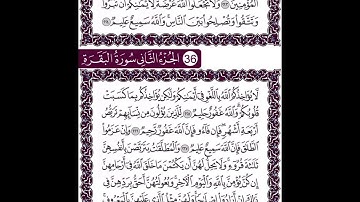 ٱلْمُؤْمِنِينَ ۝ وَلَا تَجْعَلُوا۟ ٱللَّهَ عُرْضَةً لِّأَيْمَـٰنِكُمْ أَن تَبَرُّوا۟
وَتَتَّقُوا۟ وَتُصْلِحُوا۟ بَيْنَ ٱلنَّاسِ وَٱللَّهُ سَمِيعٌ عَلِيمٌ ۝
36 الجُزءُ الثَّانِي سُورَةُ البَقَرَةِ
لَّا يُؤَاخِذُكُمُ ٱللَّهُ بِٱللَّغْوِ فِىٓ أَيْمَـٰنِكُمْ وَلَـٰكِن يُؤَاخِذُكُم بِمَا كَسَبَتْ
قُلُوبُكُمْ وَٱللَّهُ غَفُورٌ حَلِيمٌ ۝ لِّلَّذِينَ يُؤْلُونَ مِن نِّسَآئِهِمْ تَرَبُّصُ
أَرْبَعَةِ أَشْهُرٍ فَإِن فَآءُو فَإِنَّ ٱللَّهَ غَفُورٌ رَّحِيمٌ ۝ وَإِنْ عَزَمُوا۟
ٱلطَّلَـٰقَ فَإِنَّ ٱللَّهَ سَمِيعٌ عَلِيمٌ ۝ وَٱلْمُطَلَّقَـٰتُ يَتَرَبَّصْنَ بِأَنفُسِهِنَّ
ثَلَـٰثَةَ قُرُوٓءٍ وَلَا يَحِلُّ لَهُنَّ أَن يَكْتُمْنَ مَا خَلَقَ ٱللَّهُ فِىٓ أَرْحَامِهِنَّ
إِن كُنَّ يُؤْمِنَّ بِٱللَّهِ وَٱلْيَوْمِ ٱلْـَٔاخِرِ وَبُعُولَتُهُنَّ أَحَقُّ بِرَدِّهِنَّ فِى